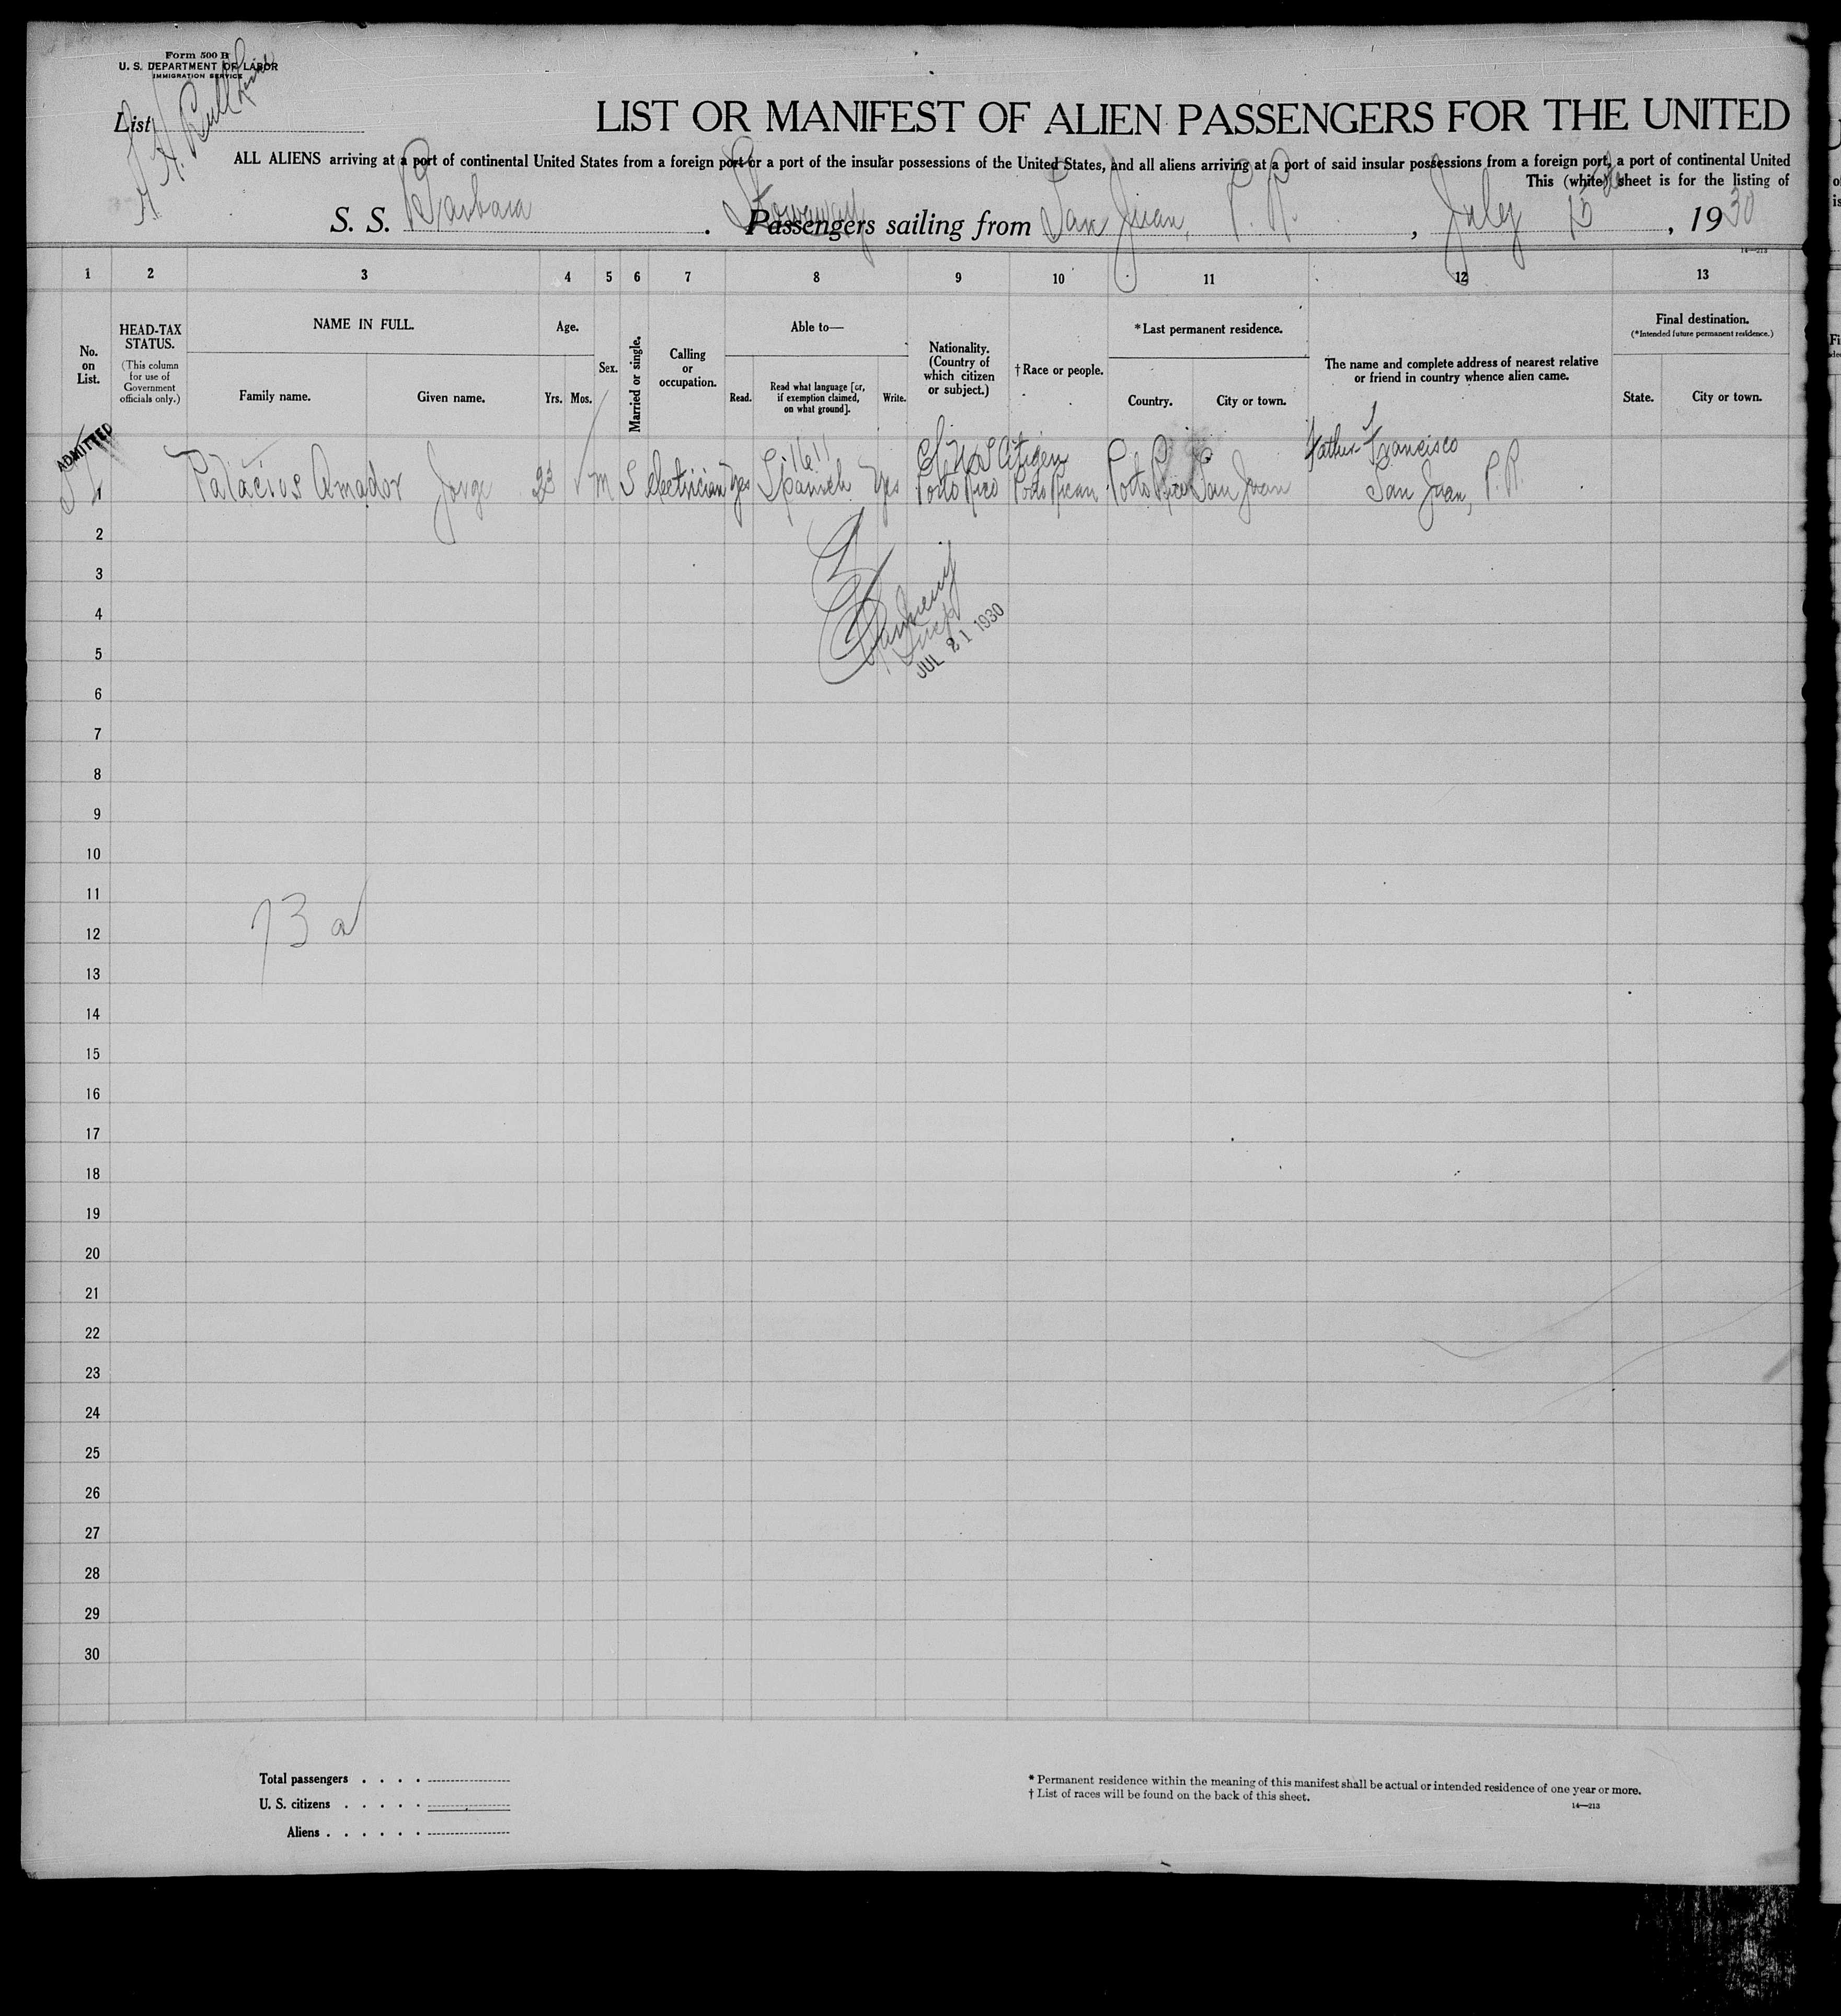 Form 500 B
U. S. DEPARTMENT OF LABOR
IMMIGRATION SERVICE
List
A. H. Bull Line
LIST OR MANIFEST OF ALIEN PASSENGERS FOR THE UNITED
ALL ALIENS arriving at a port of continental United States from a foreign port or a port of the insular possessions of the United States, and all aliens arriving at a port of said insular possessions from a foreign port, a port of continental United
This (white) sheet is for the listing of
Stowaway
S. S. Barbara . Passengers sailing from San Juan, P. R. , July 15 , 1930
14—213
1 2 3 4 5 6 7 8 9 10 11 12 13
No. on List.
HEAD-TAX STATUS.
(This column for use of Government officials only.)
NAME IN FULL.
Family name.
Given name.
Age.
Yrs. Mos.
Sex.
Married or single.
Calling or occupation.
Able to—
Read.
Read what language [or, if exemption claimed, on what ground].
Write.
Nationality. (Country of which citizen or subject.)
† Race or people.
* Last permanent residence.
Country.
City or town.
The name and complete address of nearest relative or friend in country whence alien came.
Final destination.
(*Intended future permanent residence.)
State.
City or town.
ADMITTED
U S Citizen
Father Francisco
1 Palacios Amador Jorge 23 M S electrician Yes Spanish Yes Porto Rico Porto Rican Porto Rico San Juan San Juan, P. R.
2
3
4
JUL 21 1930
5
6
7
8
9
10
11
73 a
12
13
14
15
16
17
18
19
20
21
22
23
24
25
26
27
28
29
30
Total passengers . . . .
U. S. citizens . . . . .
Aliens . . . . . .
* Permanent residence within the meaning of this manifest shall be actual or intended residence of one year or more.
† List of races will be found on the back of this sheet.
14—213